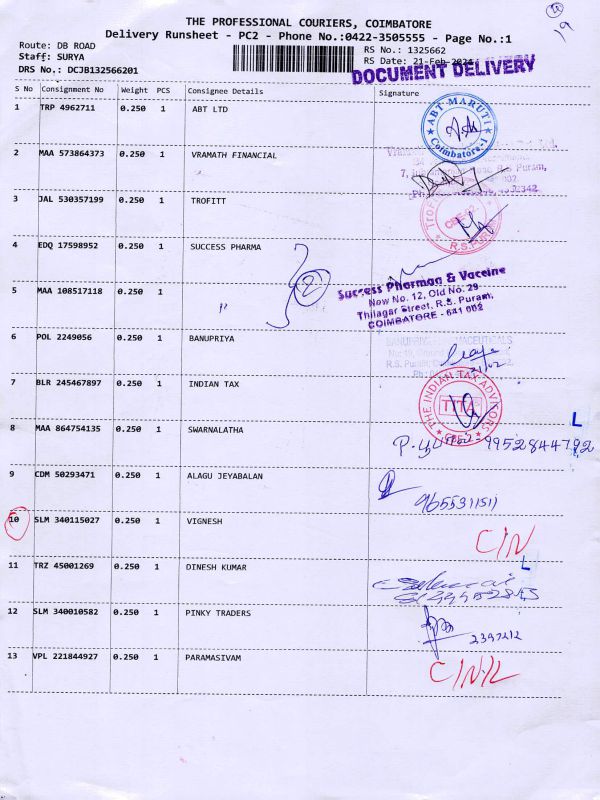 THE PROFESSIONAL COURIERS, COIMBATORE
Delivery Runsheet - PC2 - Phone No.:0422-3505555 - Page No.:1
Route: DB ROAD
RS No.: 1325662
Staff: SURYA
RS Date: 21-Feb-2024
DRS No.: DCJB132566201
DOCUMENT DELIVERY
S No Consignment No Weight PCS Consignee Details Signature
1 TRP 4962711 0.250 1 ABT LTD
ABT MARUTI
Coimbatore-1
2 MAA 573864373 0.250 1 VRAMATH FINANCIAL
R.S Puram,
3 JAL 530357199 0.250 1 TROFITT
R.S.PURAM
4 EDQ 17598952 0.250 1 SUCCESS PHARMA
2
Success Pharmaa & Vacceine
New No. 12, Old No. 29
Thilagar Street, R.S. Puram,
COIMBATORE - 641 002
5 MAA 108517118 0.250 1 "
6 POL 2249056 0.250 1 BANUPRIYA
21/02
7 BLR 245467897 0.250 1 INDIAN TAX
THE INDIAN TAX ADVISORS
8 MAA 864754135 0.250 1 SWARNALATHA
L
9952844792
9 CDM 50293471 0.250 1 ALAGU JEYABALAN
9655311511
10 SLM 340115027 0.250 1 VIGNESH
C/N
11 TRZ 45001269 0.250 1 DINESH KUMAR
L
12 SLM 340010582 0.250 1 PINKY TRADERS
2397212
13 VPL 221844927 0.250 1 PARAMASIVAM